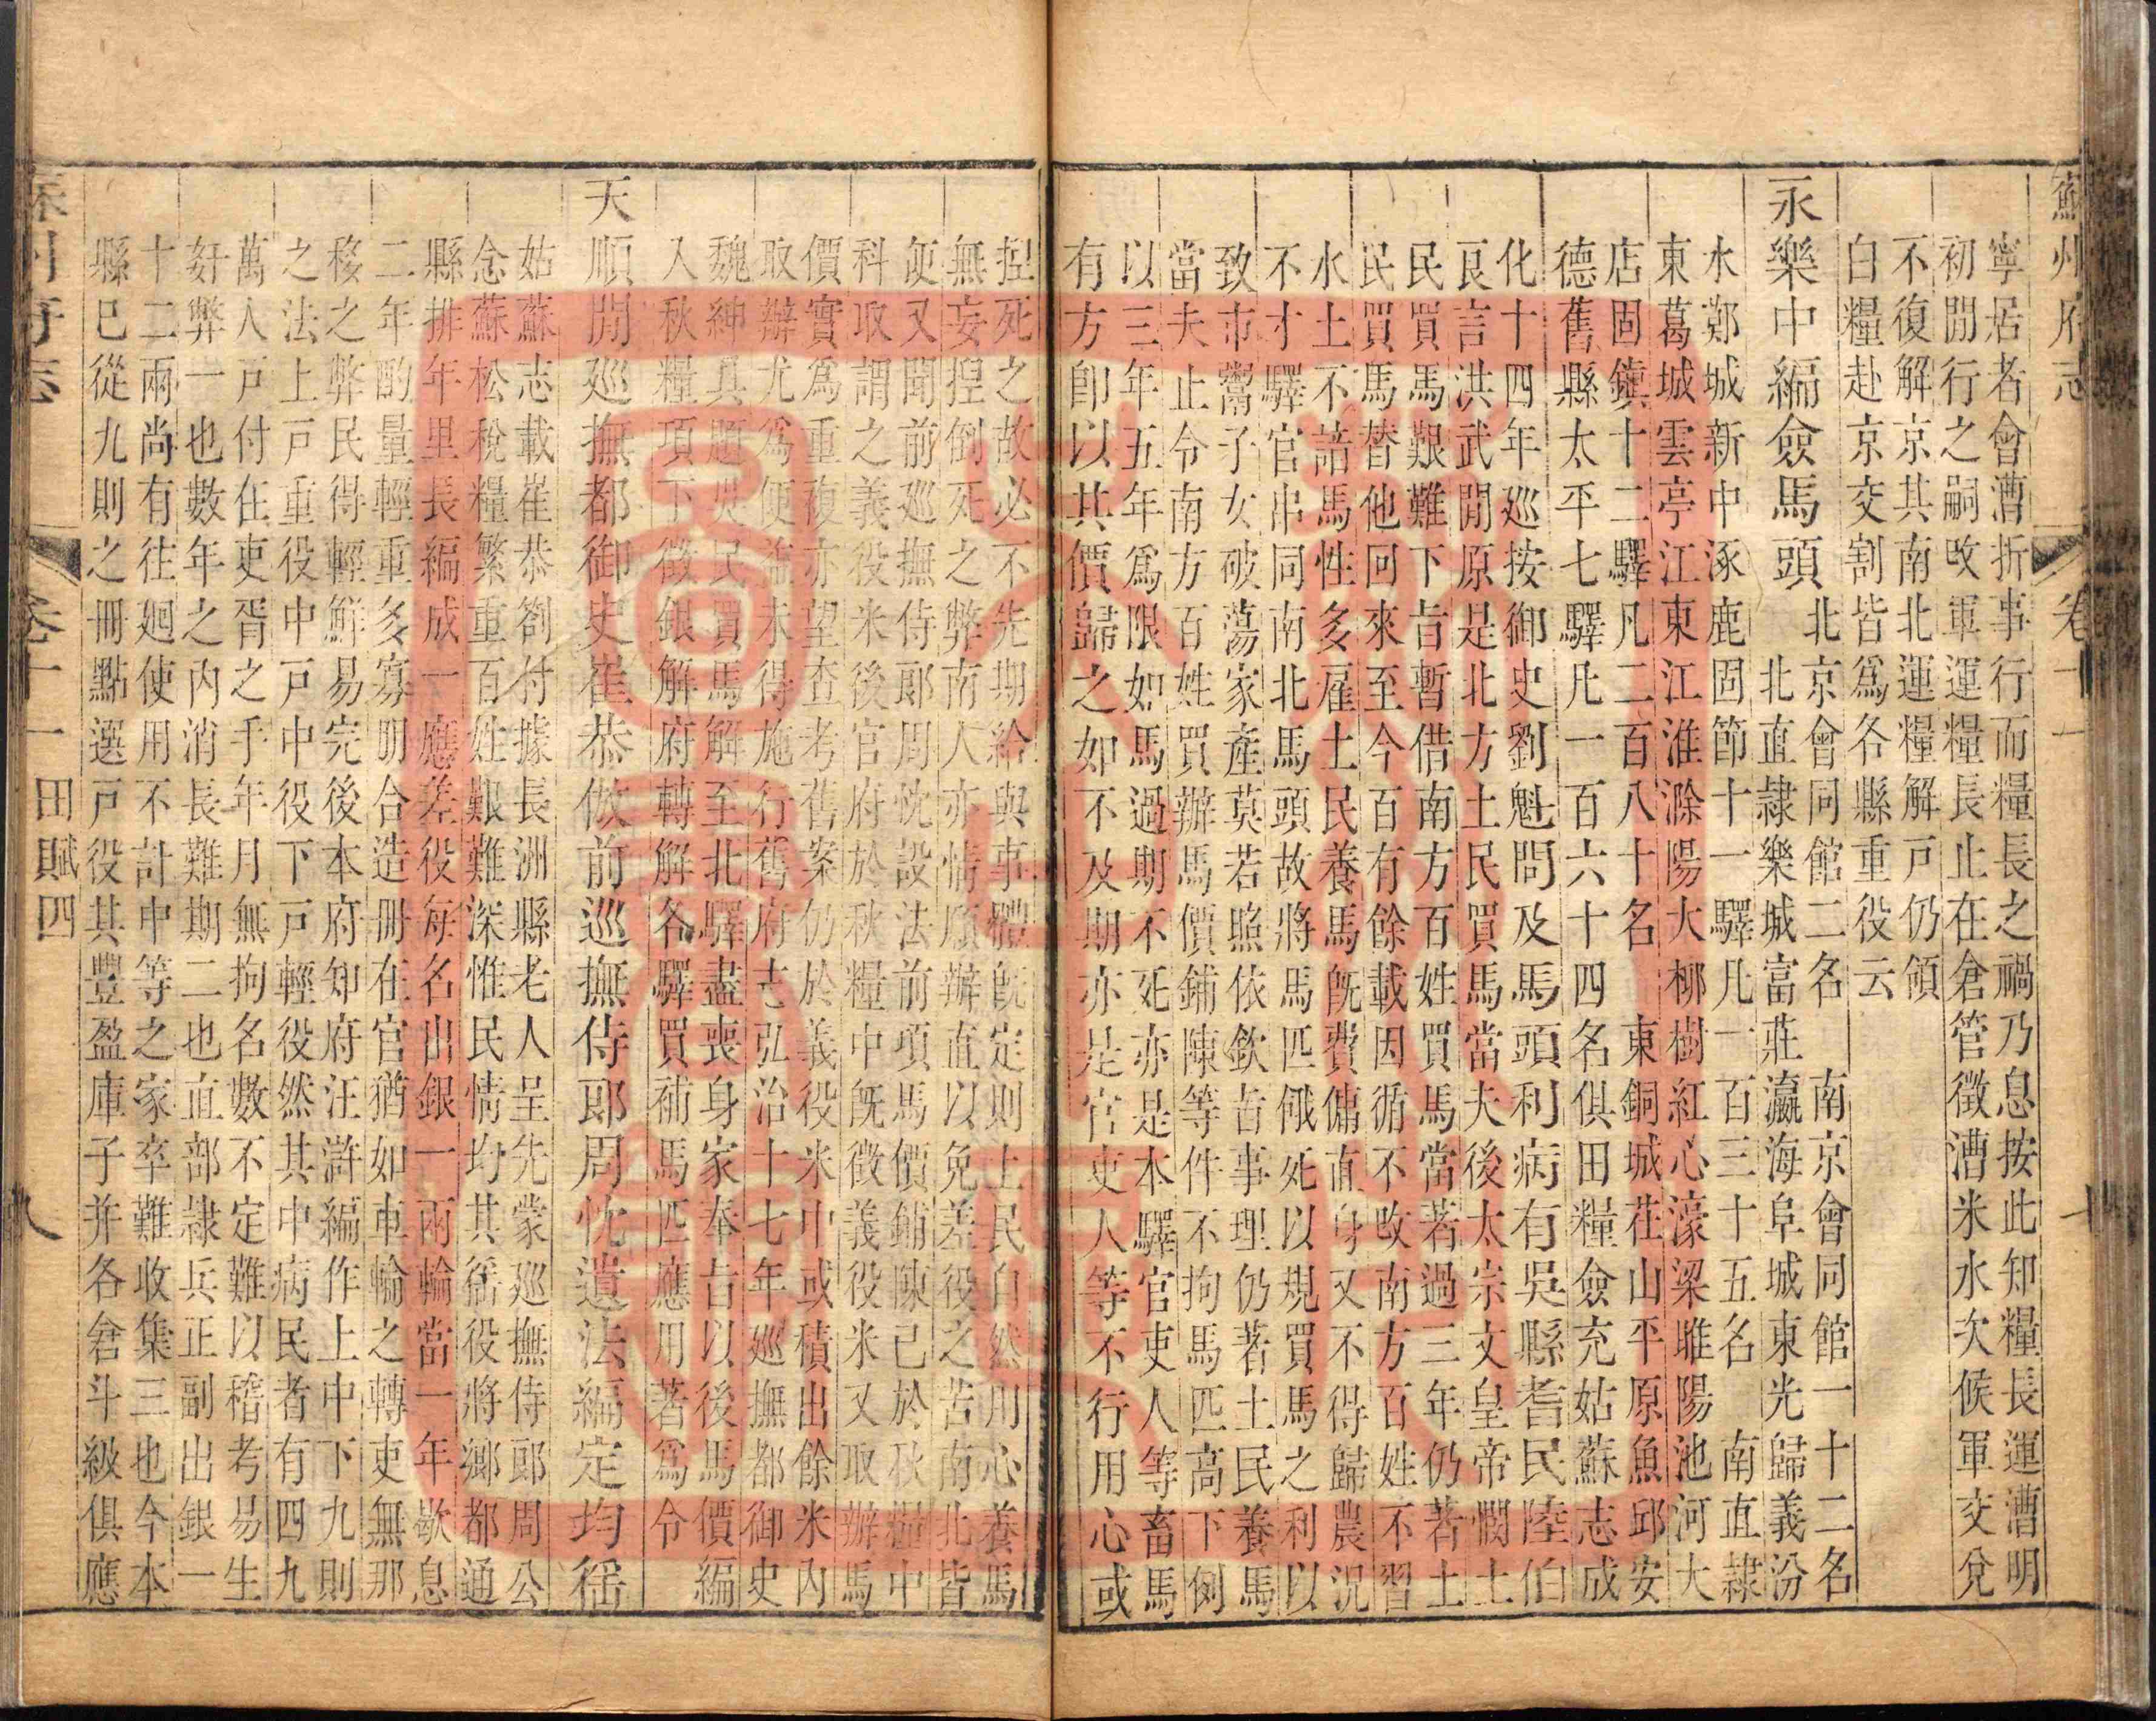 蘇州府志 卷十一 十
寧居者會漕折事行而糧長之禍乃息按此知糧長運漕明
初閒行之嗣改軍運糧長止在倉管徵漕米水次候軍交兌
不復解京其南北運糧解戶仍領
白糧赴京交割皆爲各縣重役云
永樂中編僉馬頭
北京會同館二名 南京會同館一十二名
北直隸樂城富莊瀛海阜城東光歸義汾
水鄚城新中涿鹿固節十一驛凡一百三十五名 南直隸
東葛城雲亭江東江淮滁陽大柳樹紅心濠梁睢陽池河大
店固鎮十二驛凡二百八十名 東銅城茌山平原魚邱安
德舊縣太平七驛凡一百六十四名俱田糧僉充姑蘇志成
化十四年巡按御史劉魁問及馬頭利病有吳縣耆民陸伯
良言洪武閒原是北方土民買馬當夫後太宗文皇帝憫土
民買馬艱難下旨暫借南方百姓買馬當若過三年仍著土
民買馬替他回來至今百有餘載因循不改南方百姓不習
水土不諳馬性多雇土民養馬旣費傭直身又不得歸農況
不才驛官串同南北馬頭故將馬匹餓死以規買馬之利以
致市鬻子女破蕩家產莫若照依欽旨事理仍著土民養馬
當夫止令南方百姓買辦馬價鋪陳等件不拘馬匹高下例
以三年五年爲限如馬過期不死亦是本驛官吏人等畜馬
有方卽以其價歸之如不及期亦是官吏人等不行用心或
捏死之故必不先期給與事體旣定則土民自然用心養馬
無妄捏倒死之弊南人亦情願辦直以免差役之苦南北皆
便又聞前巡撫侍郎周忱設法前項馬價鋪陳已於秋糧中
科取謂之義役米後官府於秋糧中旣徵義役米又取辦馬
價實爲重複亦望查考舊案仍於義役米中或積出餘米內
取辦尤爲便益未得施行舊府志弘治十七年巡撫都御史
魏紳具題災民買馬解至北驛盡喪身家奉旨以後馬價編
入秋糧項下徵銀解府轉解各驛買補馬匹應用著爲令
天順閒巡撫都御史崔恭倣前巡撫侍郎周忱遺法編定均徭
姑蘇志載崔恭劄付據長洲縣老人呈先蒙巡撫侍郎周公
念蘇松稅糧繁重百姓艱難深惟民情均其徭役將鄉都通
縣排年里長編成一應差役每名出銀一兩輪當一年歇息
二年酌量輕重多寡明合造冊在官猶如車輪之轉吏無那
移之弊民得輕鮮易完後本府知府汪滸編作上中下九則
之法上戶重役中戶中役下戶輕役然其中病民者有四九
萬人戶付在吏胥之手年月無拘名數不定難以稽考易生
奸弊一也數年之內消長難期二也直部隸兵正副出銀一
十二兩尚有往廻使用不計中等之家卒難收集三也今本
縣已從九則之冊點選戶役其豐盈庫子并各倉斗級俱應
蘇州府志 卷十一 田賦四 八